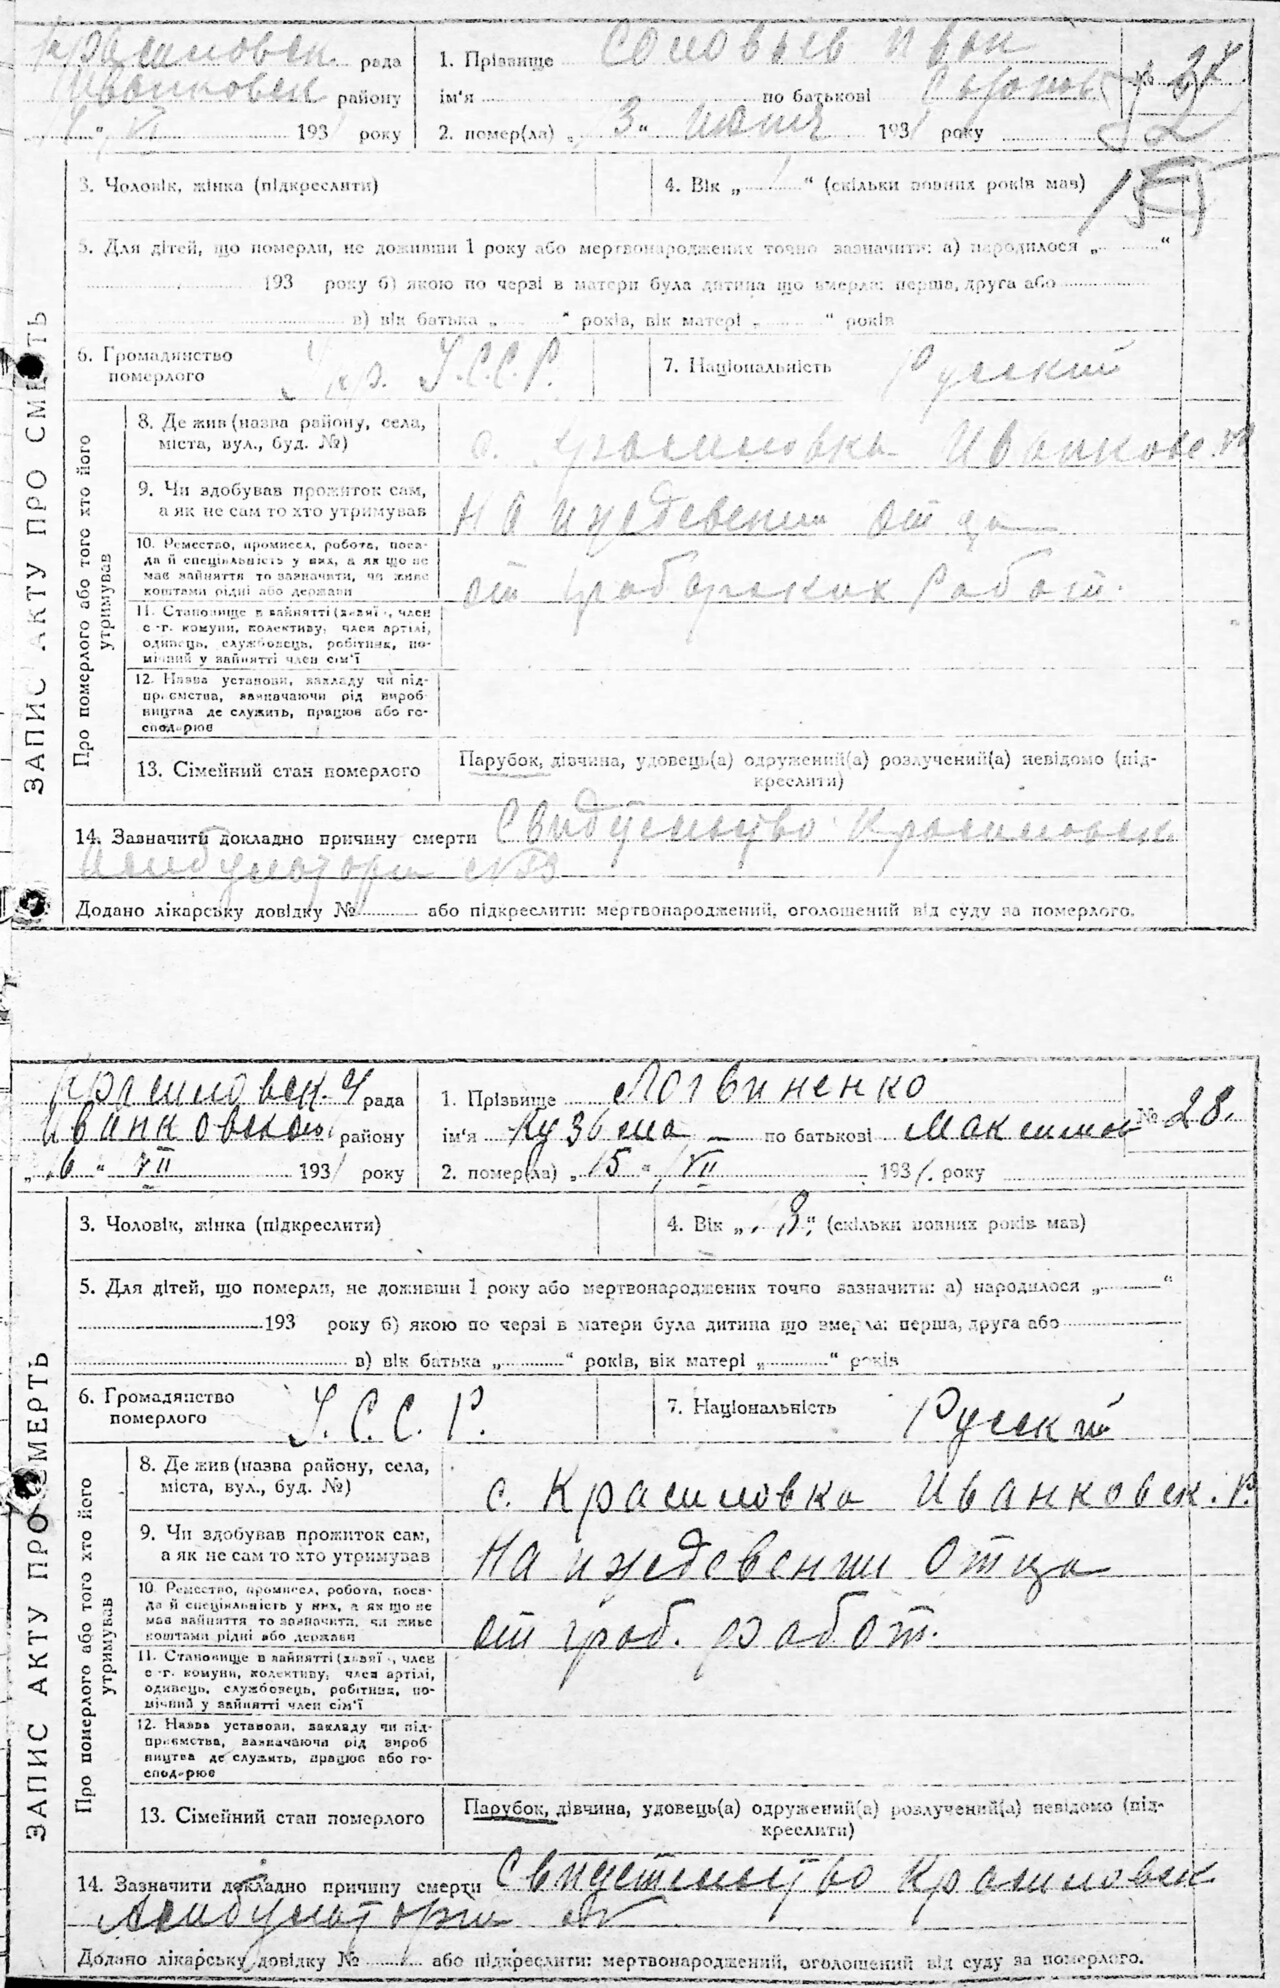 Красиловск рада
Иванковск району
„ “ VI 193 року
1. Прізвище Соловьев Иван
ім'я по батькові
2. помер(ла) „ 3 “ июня 1931 року
№ 27.
3. Чоловік, жінка (підкреслити)
4. Вік „ “ (скільки повних років мав)
5. Для дітей, що померли, не доживши 1 року або мертвонароджених точно зазначити: а) народилося „ “
193 року б) якою по черзі в матери була дитина що вмерла: перша, друга або
в) вік батька „ “ років, вік матері „ “ років
6. Громадянство
померлого
Укр. У.С.С.Р.
7. Національність Русский
ЗАПИС АКТУ ПРО СМЕРТЬ
Про померлого або того хто його
утримував
8. Де жив (назва району, села,
міста, вул., буд. №)
с. Красиловка Иванков.
9. Чи здобував прожиток сам,
а як не сам то хто утримував
На иждевении отца
10. Ремество, промисел, робота, поса-
да й спеціяльність у них, а як що не
мав зайняття то зазначити, чи живе
коштами рідні або держави
от грабарских работ.
11. Становище в зайнятті (хазяї , член
с.-г. комуни, колективу, член артілі,
одинець, службовець, робітник, по-
мічний у зайнятті член сім'ї
12. Назва установи, закладу чи під-
приємства, зазначаючи рід вироб-
ництва де служить, працює або го-
сподарює
13. Сімейний стан померлого
Парубок, дівчина, удовець(а) одружений(а) розлучений(а) невідомо (під-
креслити)
14. Зазначити докладно причину смерти Свидетельство Красиловск
Амбулатории №
Додано лікарську довідку № або підкреслити: мертвонароджений, оголошений від суду за померлого.
Красиловск. рада
Иванковского району
„ 6 “ VII 1931 року
1. Прізвище Логвиненко
ім'я Кузьма по батькові Максимов
2. помер(ла) „ 5 “ VII 1931. року
№ 28.
3. Чоловік, жінка (підкреслити)
4. Вік „ 3. “ (скільки повних років мав)
5. Для дітей, що померли, не доживши 1 року або мертвонароджених точно зазначити: а) народилося „ “
193 року б) якою по черзі в матери була дитина що вмерла: перша, друга або
в) вік батька „ “ років, вік матері „ “ років
6. Громадянство
померлого
У.С.С.Р.
7. Національність Русский
ЗАПИС АКТУ ПРО СМЕРТЬ
Про померлого або того хто його
утримував
8. Де жив (назва району, села,
міста, вул., буд. №)
с. Красиловка Иванковск. р.
9. Чи здобував прожиток сам,
а як не сам то хто утримував
На иждевении отца
10. Ремество, промисел, робота, поса-
да й спеціяльність у них, а як що не
мав зайняття то зазначити, чи живе
коштами рідні або держави
от граб. работ.
11. Становище в зайнятті (хазяї , член
с.-г. комуни, колективу, член артілі,
одинець, службовець, робітник, по-
мічний у зайнятті член сім'ї
12. Назва установи, закладу чи під-
приємства, зазначаючи рід вироб-
ництва де служить, працює або го-
сподарює
13. Сімейний стан померлого
Парубок, дівчина, удовець(а) одружений(а) розлучений(а) невідомо (під-
креслити)
14. Зазначити докладно причину смерти Свидетельство Красиловск
Амбулатории №
Додано лікарську довідку № або підкреслити: мертвонароджений, оголошений від суду за померлого.